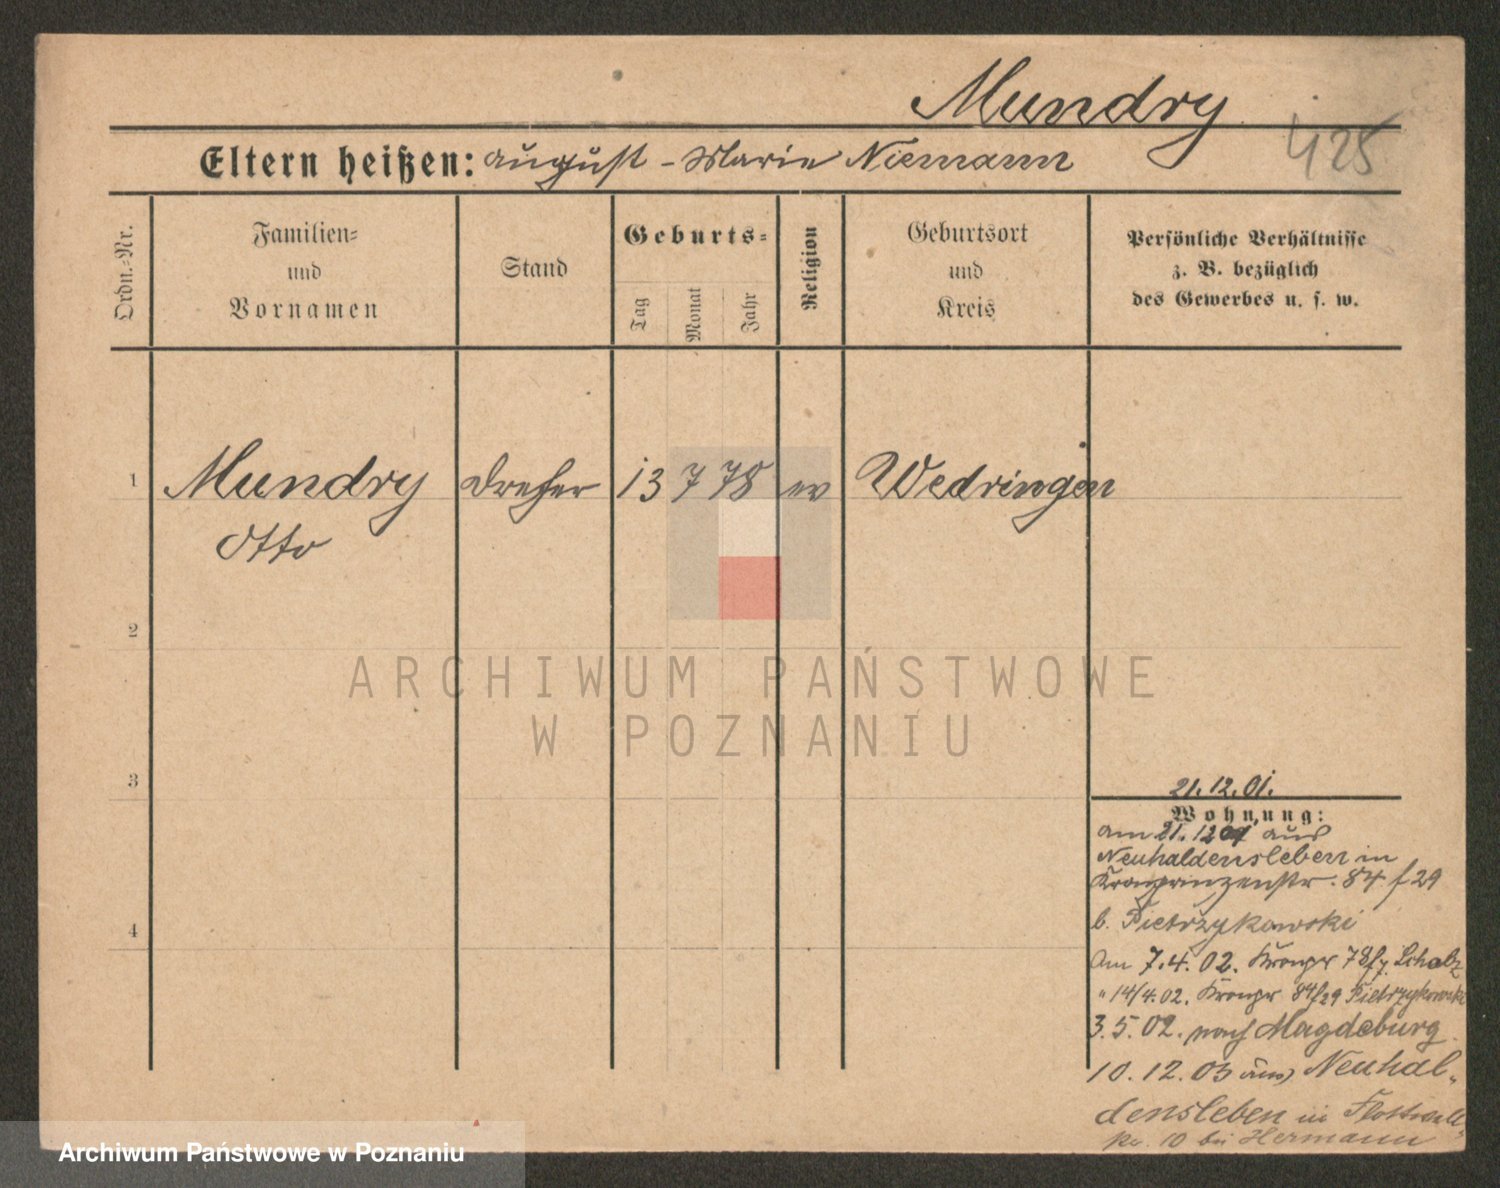 Mundry
425
Eltern heißen: August - Marie Niemann
Ordn.-Nr.
Familien-
und
Vornamen
Stand
Geburts-
Tag
Monat
Jahr
Religion
Geburtsort
und
Kreis
Persönliche Verhältnisse
z. B. bezüglich
des Gewerbes u. s. w.
1 Mundry Dreher 13 7 78 ev Wedringen
Otto
2
ARCHIWUM PAŃSTWOWE
W POZNANIU
3
21.12.01.
Wohnung:
am 21.12 01 aus
Neuhaldensleben in
Kronprinzenstr. 84 f 29
b. Pietrzykowski
4
Am 7.4.02. Kronpr 78 f Scholz
" 14/4.02. Kronpr 84 f 29 Pietrzykowski
3.5.02. nach Magdeburg
10.12.03 aus Neuhal-
densleben in Flottwell
str. 10 bei Hermann
Archiwum Państwowe w Poznaniu